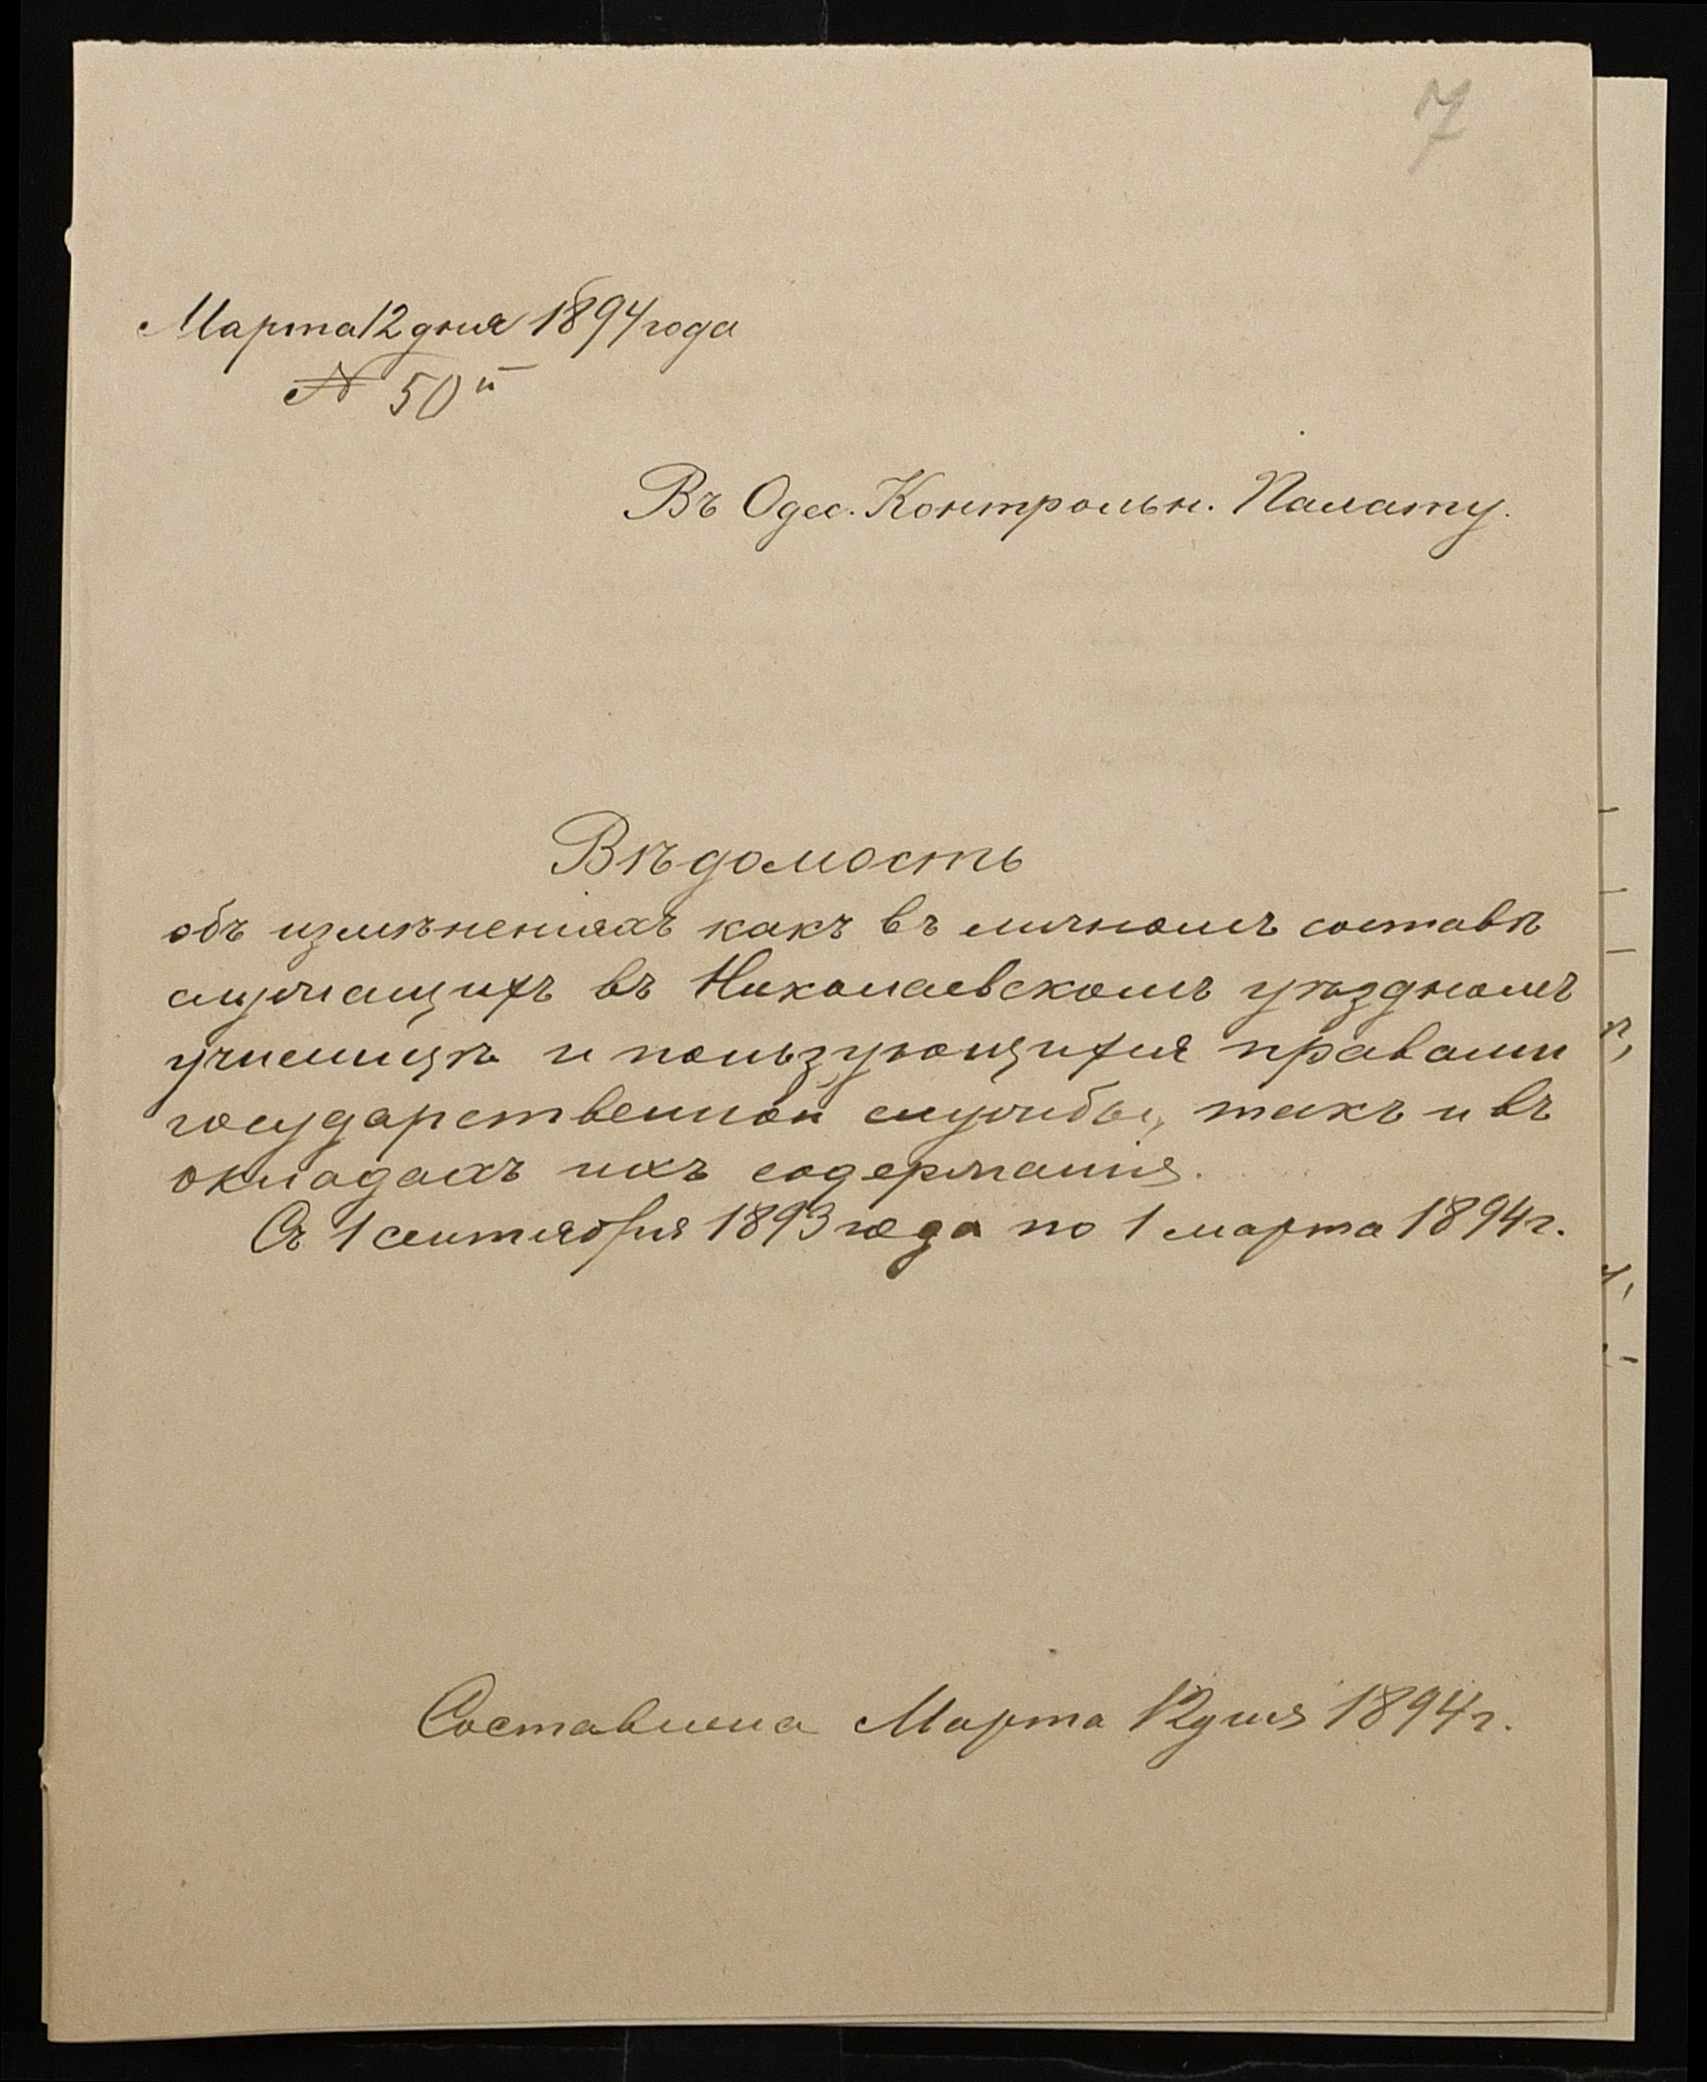 7
Марта 12 дня 1894 года
№ 50й
Въ Одес. Контрольн. Палату.
Вѣдомость
объ измѣненіяхъ какъ въ личномъ составѣ
служащихъ въ Николаевскомъ уѣздномъ
училищѣ и пользующихся правами
государственной службы, такъ и въ
окладахъ ихъ содержанія.
Съ 1 сентября 1893 года по 1 марта 1894 г.
Составлена Марта 12 дня 1894 г.